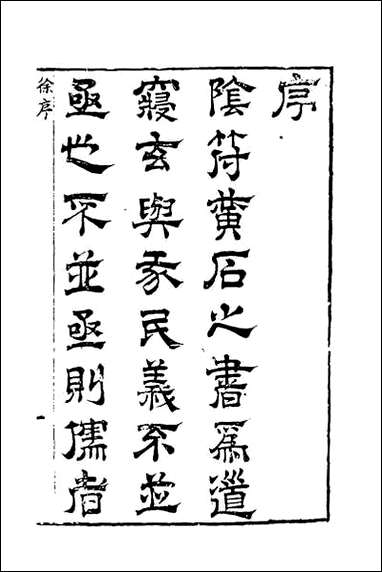 序
陰符黃石之書爲道
玄與民義不並
亟也不並亟則儒者
徐序